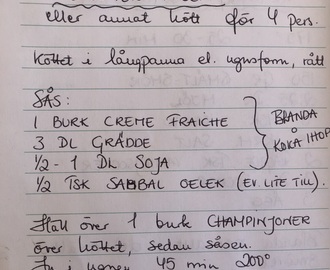 eller annat kött för 4 pers.
Köttet i långpanna el. ugnsform, rått
SÅS:
1 BURK CREME FRAICHE
3 DL GRÄDDE
1/2 - 1 DL SOJA
1/2 TSK SAMBAL OELEK (EV. LITE TILL).
BLANDA
&
KOKA IHOP
Häll över 1 burk CHAMPINJONER
över köttet, sedan såsen.
In i ugnen 45 min 200°